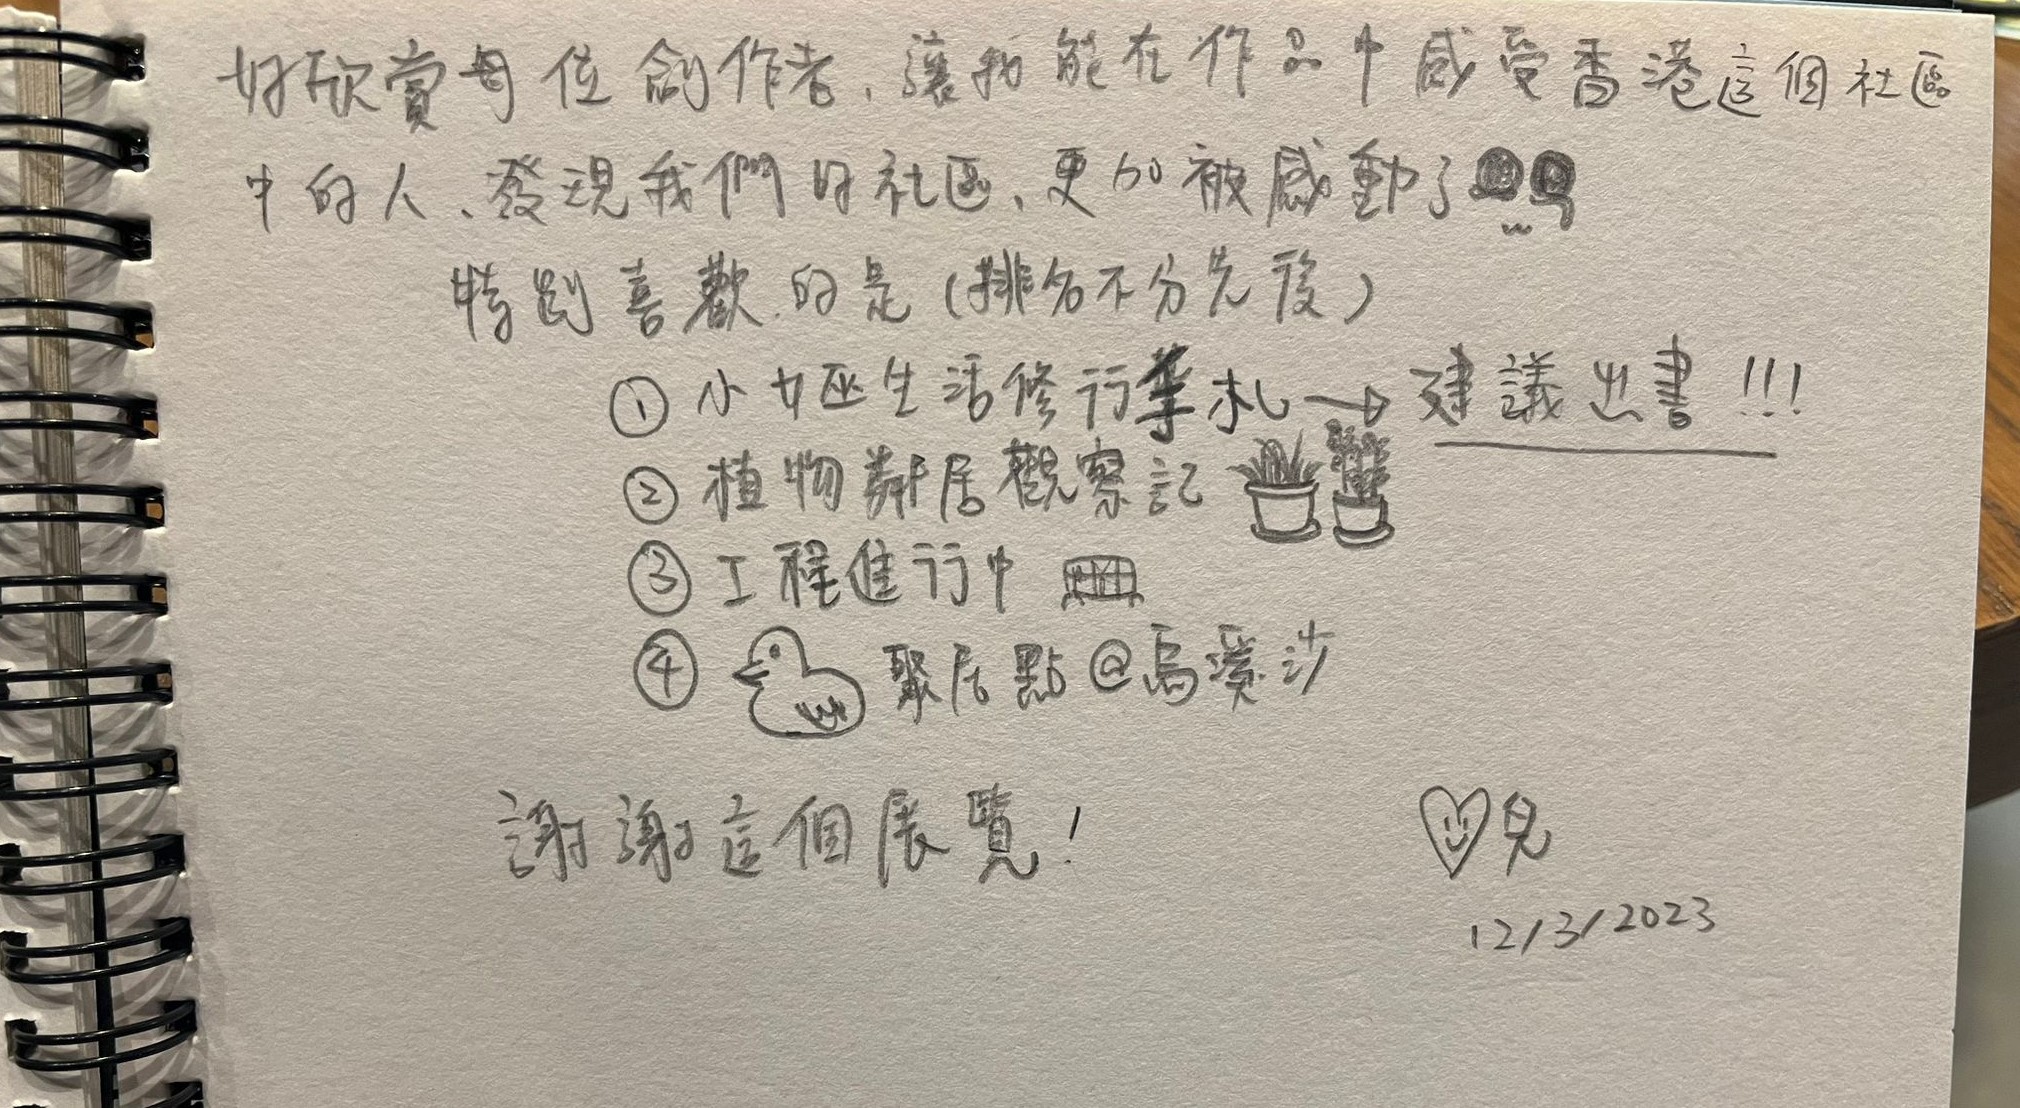 好欣賞每位創作者、讓我能在作品中感受香港這個社區
中的人、發現我們的社區、更加被感動了
特別喜歡的是(排名不分先後)
① 小女巫生活修行筆札→建議出書!!!
② 植物鄰居觀察記
③ 工程進行中
④ 聚居點@烏溪沙
謝謝這個展覽!
兒
12/3/2023